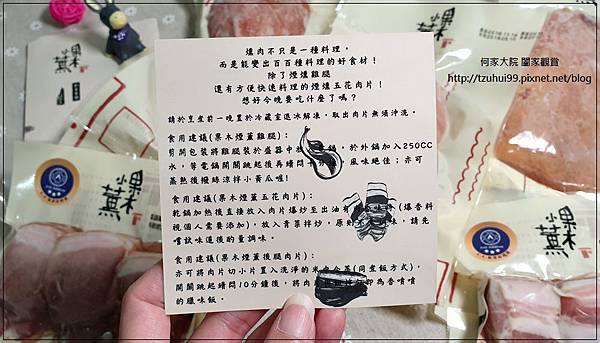 煙肉不只是一種料理，
而是能變出百百種料理的好食材！
除了煙燻雞腿
還有方便快速料理的煙燻五花肉片！
想好今晚要吃什麼了嗎？
請於烹煮前一晚置於冷藏室退冰解凍，取出肉片無須沖洗。
食用建議(果木煙薰雞腿)：
剪開包裝將雞腿裝於盛器中放 鍋，於外鍋加入250CC
水，等電鍋開關跳起後再續悶十分鐘， 風味絕佳；亦可
蒸熟後撥絲涼拌小黃瓜喔！
食用建議(果木煙薰五花肉片)：
乾鍋加熱後直接放入肉片爆炒至出油 (爆香料
視個人需要添加)，放入青菜拌炒，原 味，請先
嘗試味道後酌量調味。
食用建議(果木煙薰後腿肉片)：
亦可將肉片切小片置入洗淨的米 (同煮飯方式)，
開關跳起續悶10分鐘後，將肉 即為香噴噴
的臘味飯。
何家大院 闔家觀賞
http://tzuhui99.pixnet.net/blog
果木薰
果木薰
果木薰